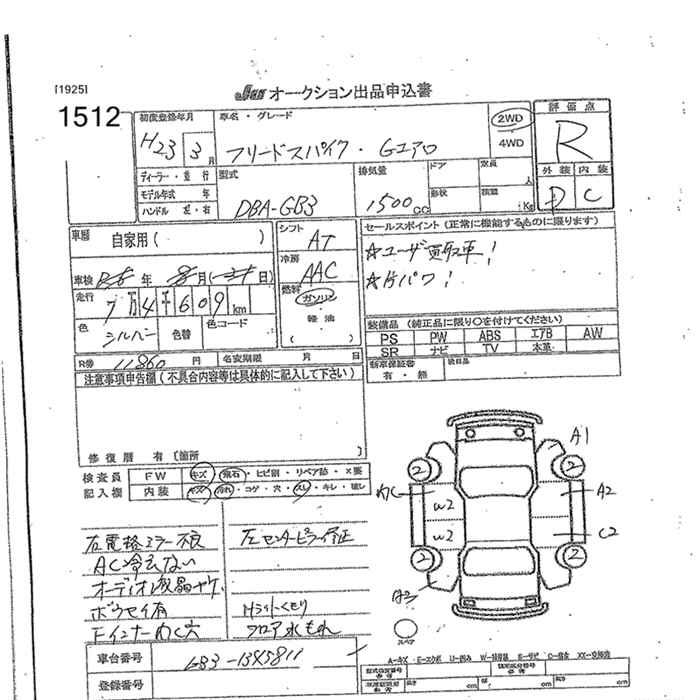 [1925]
1512
オークション出品申込書
初度登録年月 車名・グレード 2WD 評価点
H23 3月 フリードスパイク・Gエアロ 4WD R
ディーラー・並行 型式 排気量 ドア 定員 人 外装 内装
モデル年式 年 DBA-GB3 1500cc 形状 積載 Kg D C
ハンドル 左・右
車歴 自家用( ) シフト AT セールスポイント(正常に機能するものに限ります)
冷房 AAC ☆ユーザー買取車!
車検 年 月 日 ☆片パワ!
走行 7万4千609km 燃料 ガソリン
軽油
色 シルバー 色替 色コード ( ) 装備品(純正品に限り○を付けてください)
PS PW ABS エアB AW
SR ナビ TV 本革
R券 11860円 名変期限 月 日 新車保証書 有・無 欠品
注意事項申告欄(不具合内容等は具体的に記入して下さい)
修復歴 有〔箇所
検査員 FW キズ・飛石・ヒビ割・リペア跡・×要
記入欄 内装 キズ・汚れ・コゲ・穴・スレ・キレ・破レ
A1
2 2
W2 A2
W2 C2
2 2
右電格ミラー不良 左センターピラー修正
AC冷えない
オーディオ液晶ヤケ
ボウセイ有 Hライトくもり
Fインナーめくれ穴 フロア水もれ
スペア
車台番号 GB3-1345811
登録番号
A-キズ E-エクボ U-凹み W-補修跡 S-サビ C-腐食 XX-交換済
長さ cm 幅 cm 高さ cm